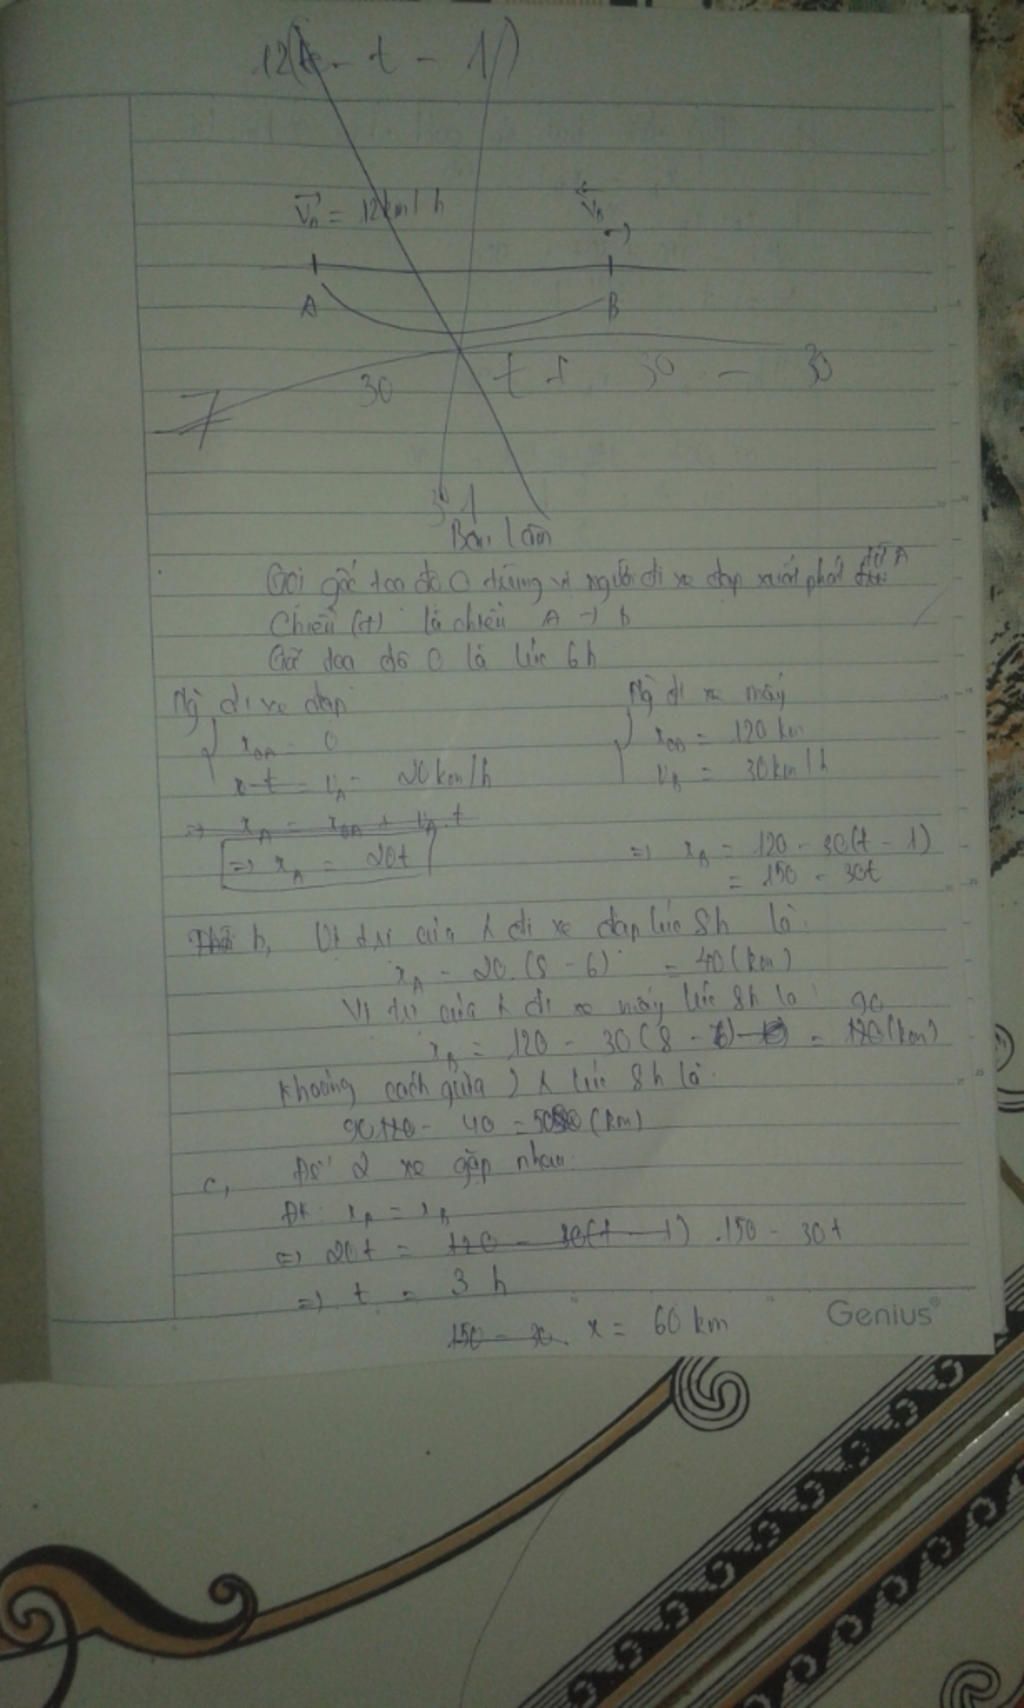 12( - t - 1)
V = 12km/h
A B
30 t 30 - 30
Bài làm
Gọi gốc toạ độ O trùng vị người đi xe đạp xuất phát từ A
Chiều (+) là chiều A → B
Gốc toạ độ O là lúc 6h
Ng đi xe đạp
x0A = 0
x - t = vA = 20km/h
=> xA = x0A + vA.t
=> xA = 20t
Ng đi xe máy
x0B = 120 km
vB = 30km/h
=> xB = 120 - 30(t - 1)
= 150 - 30t
b, Vị trí của đi xe đạp lúc 8h là:
xA = 20.(8 - 6) = 40(km)
Vị trí của đi xe máy lúc 8h là
xB = 120 - 30(8 - ) = 90 (km)
Khoảng cách giữa 2 lúc 8h là:
90 - 40 = 50 (km)
c, Để 2 xe gặp nhau:
ĐK: xA = xB
=> 20t = 120 - 30(t - 1) 150 - 30t
=> t = 3 h
150 - 30 x = 60 km
Genius